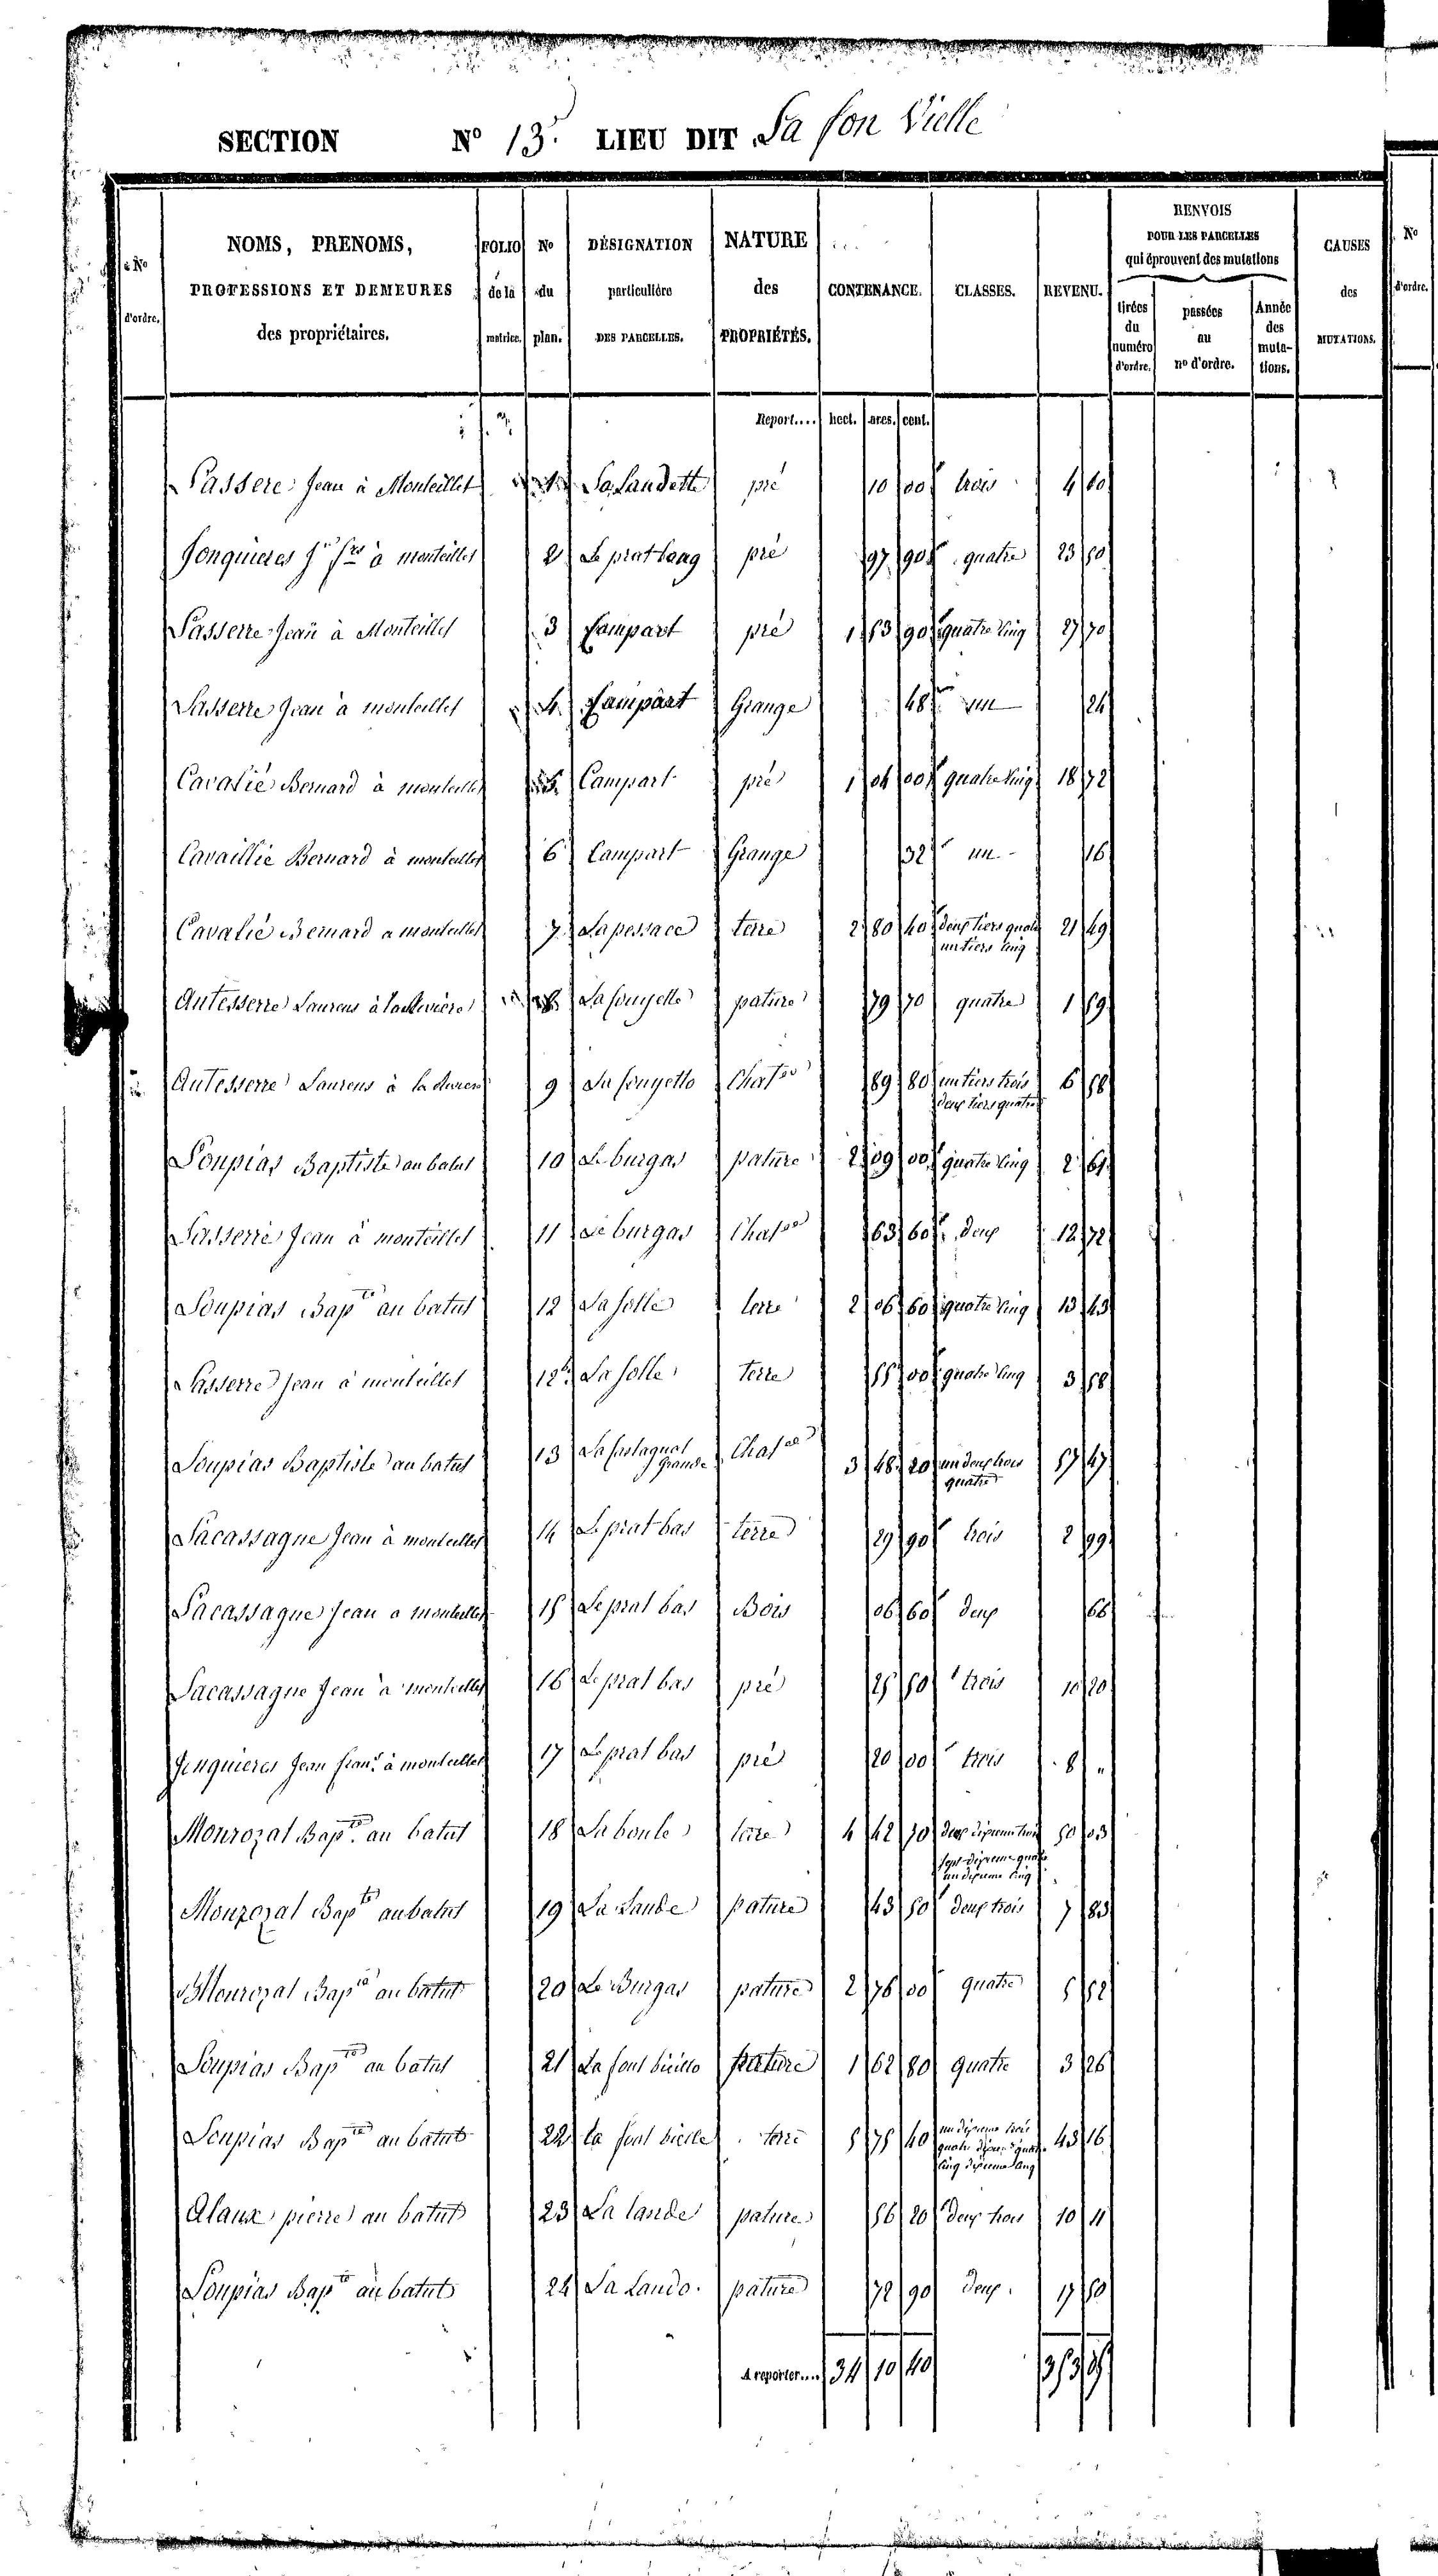 SECTION N° 13. LIEU DIT La fon Vielle
N° d'ordre.
NOMS, PRENOMS, PROFESSIONS ET DEMEURES des propriétaires.
FOLIO de la matrice.
N° du plan.
DÉSIGNATION particulière DES PARCELLES.
NATURE des PROPRIÉTÉS.
CONTENANCE.
CLASSES.
REVENU.
RENVOIS POUR LES PARCELLES qui éprouvent des mutations
tirées du numéro d'ordre.
passées au n° d'ordre.
Année des mutations.
CAUSES des MUTATIONS.
N° d'ordre.
Report.... hect. ares. cent.
Lasserre Jean à Monteillet 1 La Landette pré 10 00 trois 4 60
Jonquieres Jn fres à monteillet 2 Le prat long pré 97 90 quatre 23 50
Lasserre Jean à Monteillet 3 Campart pré 1 53 90 quatre cinq 27 70
Lasserre Jean à monteillet 4 Campart Grange 48 un 24
Cavalié Bernard à monteillet 5 Campart pré 1 04 00 quatre cinq 18 72
Cavaillié Bernard à monteillet 6 Campart Grange 32 un 16
Cavalié Bernard a monteillet 7 La pessace terre 2 80 40 deux tiers quatre un tiers cinq 21 49
Autesserre Laurens à la Riviere 8 La fouyette pature 79 70 quatre 1 59
Autesserre Laurens à la 9 La fouyette Chatee 89 80 un tiers trois deux tiers quatre 6 58
Soupias Baptiste au batut 10 Le burgas pature 2 09 00 quatre cinq 2 61
Lasserre Jean à monteillet 11 Le burgas Chatee 63 60 deux 12 72
Soupias Bapte au batut 12 La folle terre 2 06 60 quatre cinq 13 43
Lasserre Jean à monteillet 12b La folle terre 55 00 quatre cinq 3 58
Soupias Baptiste au batut 13 La Castagnal grande Chatee 3 48 20 un deux trois quatre 57 47
Lacassagne Jean à monteillet 14 Le prat bas terre 29 90 trois 2 99
Lacassagne Jean a monteillet 15 Le prat bas Bois 06 60 deux 66
Lacassagne Jean à monteillet 16 Le prat bas pré 25 50 trois 10 20
Jonquieres Jean franc. à monteillet 17 Le prat bas pré 20 00 trois 8 "
Monrozal Bapte au batut 18 La boule terre 4 42 70 deux dixieme trois sept dixieme quatre un dixieme cinq 50 03
Monrozal Bapte au batut 19 La Lande pature 43 50 deux trois 7 83
Monrozal Bapte au batut 20 Le Burgas pature 2 76 00 quatre 5 52
Soupias Bapte au batut 21 La font vieille pature 1 62 80 quatre 3 26
Soupias Bapte au batut 22 la font vieille terre 5 75 40 un dixieme trois quatre dixiemes quatre cinq dixieme cinq 43 16
Alaux pierre au batut 23 La lande pature 56 20 deux trois 10 11
Soupias Bapte au batut 24 La Lande. pature 72 90 deux. 17 50
A reporter.... 34 10 40